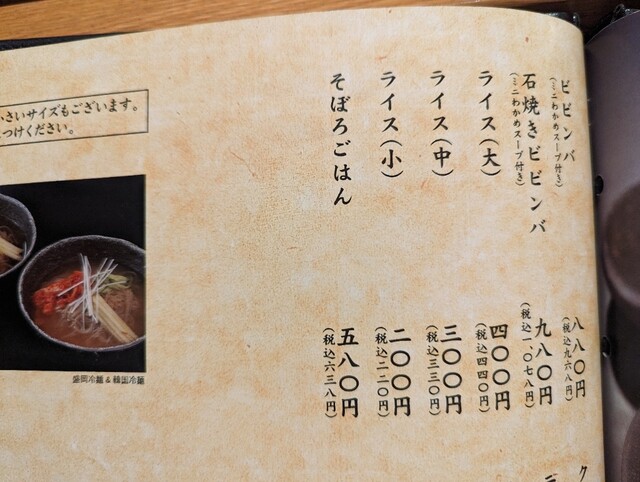 ビビンバ
(ミニわかめスープ付き)
八八〇円
(税込九六八円)
石焼きビビンバ
(ミニわかめスープ付き)
九八〇円
(税込一、〇七八円)
ライス(大)
四〇〇円
(税込四四〇円)
ライス(中)
三〇〇円
(税込三三〇円)
ライス(小)
二〇〇円
(税込二二〇円)
そぼろごはん
五八〇円
(税込六三八円)
さいサイズもございます。
つけください。
盛岡冷麺&韓国冷麺